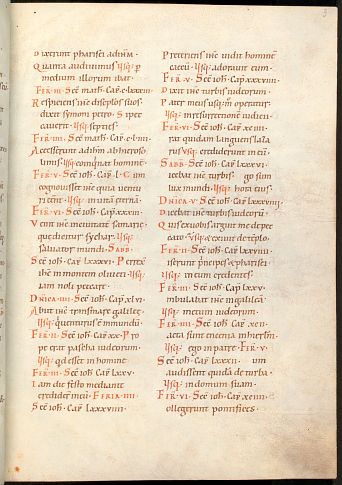 Dixerunt pharisei ad ihm̄.
Quanta audiuimus usq; p
medium illorum ibat.
Fer̄ III. Sc̄c math̄. Cap̄.
Respiciens ihc̄ discipłos suos
dixit symoni petro. Si pec
cauerit. usq; septies
Fer̄ IIII. Sc̄c math̄.
Accesserunt ad ihm̄ ab hieroso
limis. usq; hominē.
Fer̄ V. Sc̄c ioh̄. Cap̄. L. Cum
cognouisset ihc̄ quia uenit
in uitā eternā.
Fer̄ VI. Sc̄c ioh̄. Cap̄ XXXIII.
Venit ihc̄ in ciuitatē samarię
quę dicitur sychar. usq;
saluator mundi. Sabb̄.
Sc̄c ioh̄. Cap̄ LXXXVI. Perrex̄
ihc̄ in montem oliueti. usq;
iam noli peccare.
Dn̄ica IIII. Sc̄c ioh̄. Cap̄ XLVI.
Abiit ihc̄ trans mare galileę
usq; uenturus ē in mundū.
Fer̄ II. Sc̄c ioh̄. Cap̄ XX. Pro
pe erat pascha iudeorum.
usq; qd̄ esset in homine
Fer̄ III. Sc̄c ioh̄. Cap̄ LXXV.
Iam die festo mediante
crediderīt in eū. Feria IIII.
Sc̄c ioh̄. Cap̄ LXXXVIIII.
Preteriens ihc̄ uidit hominē
cecū. usq; adorauit eum.
Fer̄ V. Sc̄c ioh̄. Cap̄ XXXVIIII.
Dixit ihc̄ turbis iudeorum.
Pater meus usq; m̄ operatur.
usq; in resurrectionē iudicii.
Fer̄ VI. Sc̄c ioh̄. Cap̄ XCIIII.
Erat quidam languens laza
rus usq; crediderunt in eū.
Sabb̄. Sc̄c ioh̄. Cap̄ LXXVI.
Dicebat ihc̄ turbis. Ego sum
lux mundi. usq; hora eius.
Dn̄ica V. Sc̄c ioh̄. Cap̄ LXXXVIII.
Dicebat ihc̄ turbis iudeorū.
Quis ex uobis arguit me de pec
cato. usq; exiuit de tēplo.
Fer̄ II. Sc̄c ioh̄. Cap̄ LXXVIII.
Miserunt principes & pharisei
usq; in eum credentes.
Fer̄ III. Sc̄c ioh̄. Cap̄ LXXV.
Ambulabat ihc̄ in galileā.
usq; metum iudeorum.
Fer̄ IIII. Sc̄c ioh̄. Cap̄ XCII.
Facta sunt encenia in hierłm̄.
usq; ego in patre. Fer̄ V.
Sc̄c ioh̄. Cap̄ LXXXII. Cum
audissent quidā de turba.
usq; in domum suam.
Fer̄ VI. Sc̄c ioh̄. Cap̄ XCVIII.
Collegerunt pontifices.